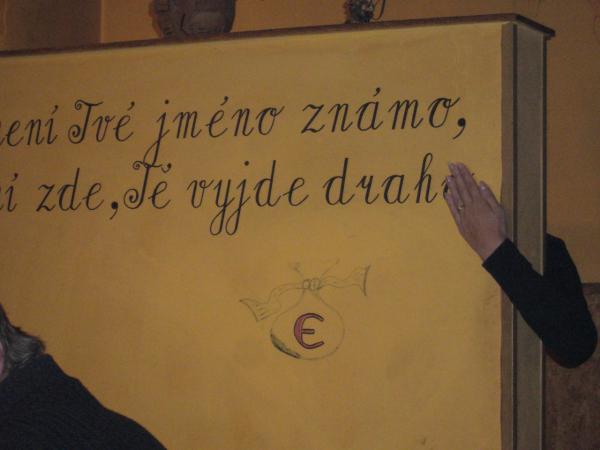 není Tvé jméno známo,
zde, Tě vyjde draho
€